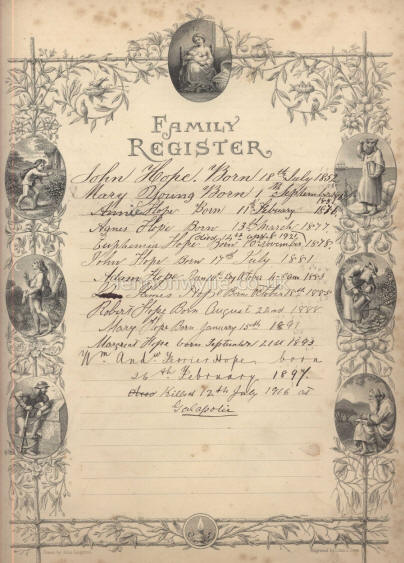 FAMILY
REGISTER.
John Hope, Born 18th July 1852
Mary Young Born 1st September
Annie Hope Born 11th Febuary 1876
Agnes Hope Born 13th March 1877
Died 12th 1952
Euphemia Hope Born November 1878
John Hope Born 17th July 1881
Adam Hope
James Hope Born 18th 1885
Robert Hope Born August 22nd 1888
Mary Hope Born January 15th 1891
Margaret Hope born September 21st 1893
Wm Andw Ferrier Hope born
26th February 1897
Also Killed 12th July 1916 at